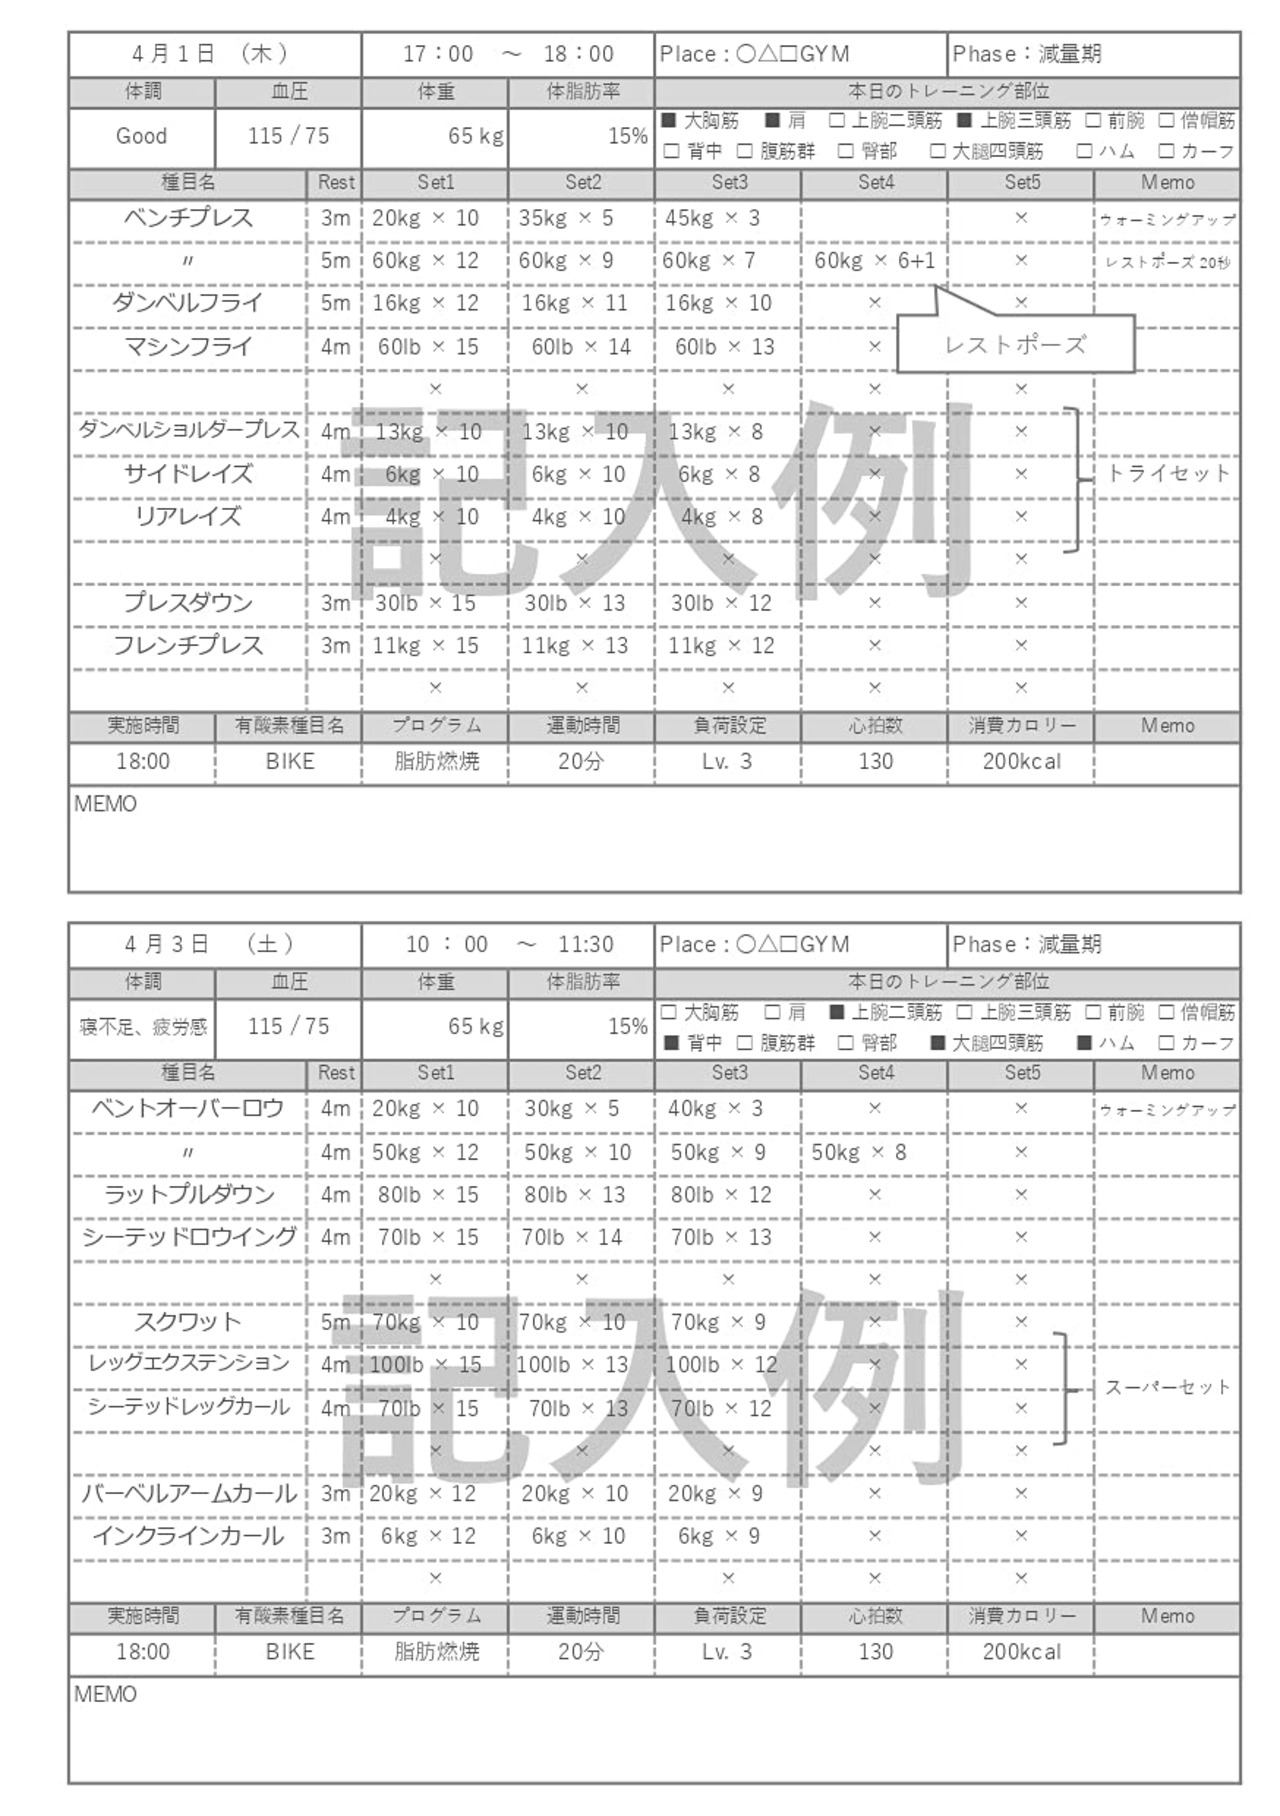 4月1日 (木) 17:00 ～ 18:00 Place:○△□GYM Phase:減量期
体調 血圧 体重 体脂肪率 本日のトレーニング部位
Good 115 / 75 65 kg 15% ■ 大胸筋 ■ 肩 □ 上腕二頭筋 ■ 上腕三頭筋 □ 前腕 □ 僧帽筋
□ 背中 □ 腹筋群 □ 臀部 □ 大腿四頭筋 □ ハム □ カーフ
種目名 Rest Set1 Set2 Set3 Set4 Set5 Memo
ベンチプレス 3m 20kg × 10 35kg × 5 45kg × 3 × ウォーミングアップ
〃 5m 60kg × 12 60kg × 9 60kg × 7 60kg × 6+1 × レストポーズ20秒
ダンベルフライ 5m 16kg × 12 16kg × 11 16kg × 10 × ×
マシンフライ 4m 60lb × 15 60lb × 14 60lb × 13 × レストポーズ
× × × × ×
ダンベルショルダープレス 4m 13kg × 10 13kg × 10 13kg × 8 × ×
サイドレイズ 4m 6kg × 10 6kg × 10 6kg × 8 × × トライセット
リアレイズ 4m 4kg × 10 4kg × 10 4kg × 8 × ×
記入例
× × × × ×
プレスダウン 3m 30lb × 15 30lb × 13 30lb × 12 × ×
フレンチプレス 3m 11kg × 15 11kg × 13 11kg × 12 × ×
× × × × ×
実施時間 有酸素種目名 プログラム 運動時間 負荷設定 心拍数 消費カロリー Memo
18:00 BIKE 脂肪燃焼 20分 Lv. 3 130 200kcal
MEMO
4月3日 (土) 10 : 00 ～ 11:30 Place:○△□GYM Phase:減量期
体調 血圧 体重 体脂肪率 本日のトレーニング部位
寝不足、疲労感 115 / 75 65 kg 15% □ 大胸筋 □ 肩 ■ 上腕二頭筋 □ 上腕三頭筋 □ 前腕 □ 僧帽筋
■ 背中 □ 腹筋群 □ 臀部 ■ 大腿四頭筋 ■ ハム □ カーフ
種目名 Rest Set1 Set2 Set3 Set4 Set5 Memo
ベントオーバーロウ 4m 20kg × 10 30kg × 5 40kg × 3 × × ウォーミングアップ
〃 4m 50kg × 12 50kg × 10 50kg × 9 50kg × 8 ×
ラットプルダウン 4m 80lb × 15 80lb × 13 80lb × 12 × ×
シーテッドロウイング 4m 70lb × 15 70lb × 14 70lb × 13 × ×
× × × × ×
スクワット 5m 70kg × 10 70kg × 10 70kg × 9 × ×
レッグエクステンション 4m 100lb × 15 100lb × 13 100lb × 12 × × スーパーセット
シーテッドレッグカール 4m 70lb × 15 70lb × 13 70lb × 12 × ×
記入例
× × × × ×
バーベルアームカール 3m 20kg × 12 20kg × 10 20kg × 9 × ×
インクラインカール 3m 6kg × 12 6kg × 10 6kg × 9 × ×
× × × ×
実施時間 有酸素種目名 プログラム 運動時間 負荷設定 心拍数 消費カロリー Memo
18:00 BIKE 脂肪燃焼 20分 Lv. 3 130 200kcal
MEMO